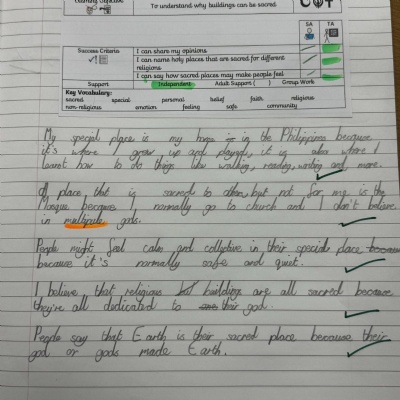 Learning Objective To understand why buildings can be sacred
SA TA
Success Criteria I can share my opinions
I can name holy places that are sacred for different religions
I can say how sacred places may make people feel
Support Independent Adult Support ( ) Group Work
Key Vocabulary:
sacred special personal belief faith religious
non-religious emotion feeling safe community
My special place is my home is in the Philippines because
it's where I grew up and played, it is also where I
learnt how to do things like walking, reading, writing and more.
A place that is sacred to others, but not for me is the
Mosque because I normally go to church and I don't believe
in multiple gods.
People might feel calm and collective in their special place because
because it's normally safe and quiet.
I believe that religious buildings are all sacred because
they're all dedicated to their god.
People say that Earth is their sacred place because their
god or gods made Earth.